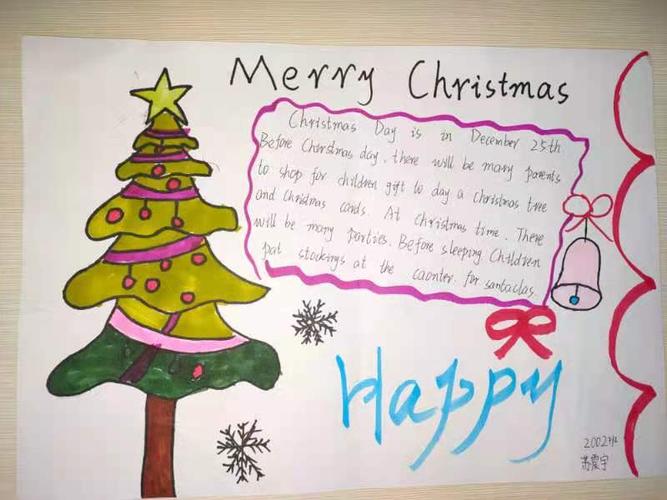 Merry Christmas
Christmas Day is in December 25th
Before Chirstmas day, there will be many parents
to shop for children gift to day a christmas tree
and Christmas cards. At christmas time. There
will be many parties. Before sleeping Children
pat stockings at the caonter. for santaclas.
Happy
2002班
苏震宇